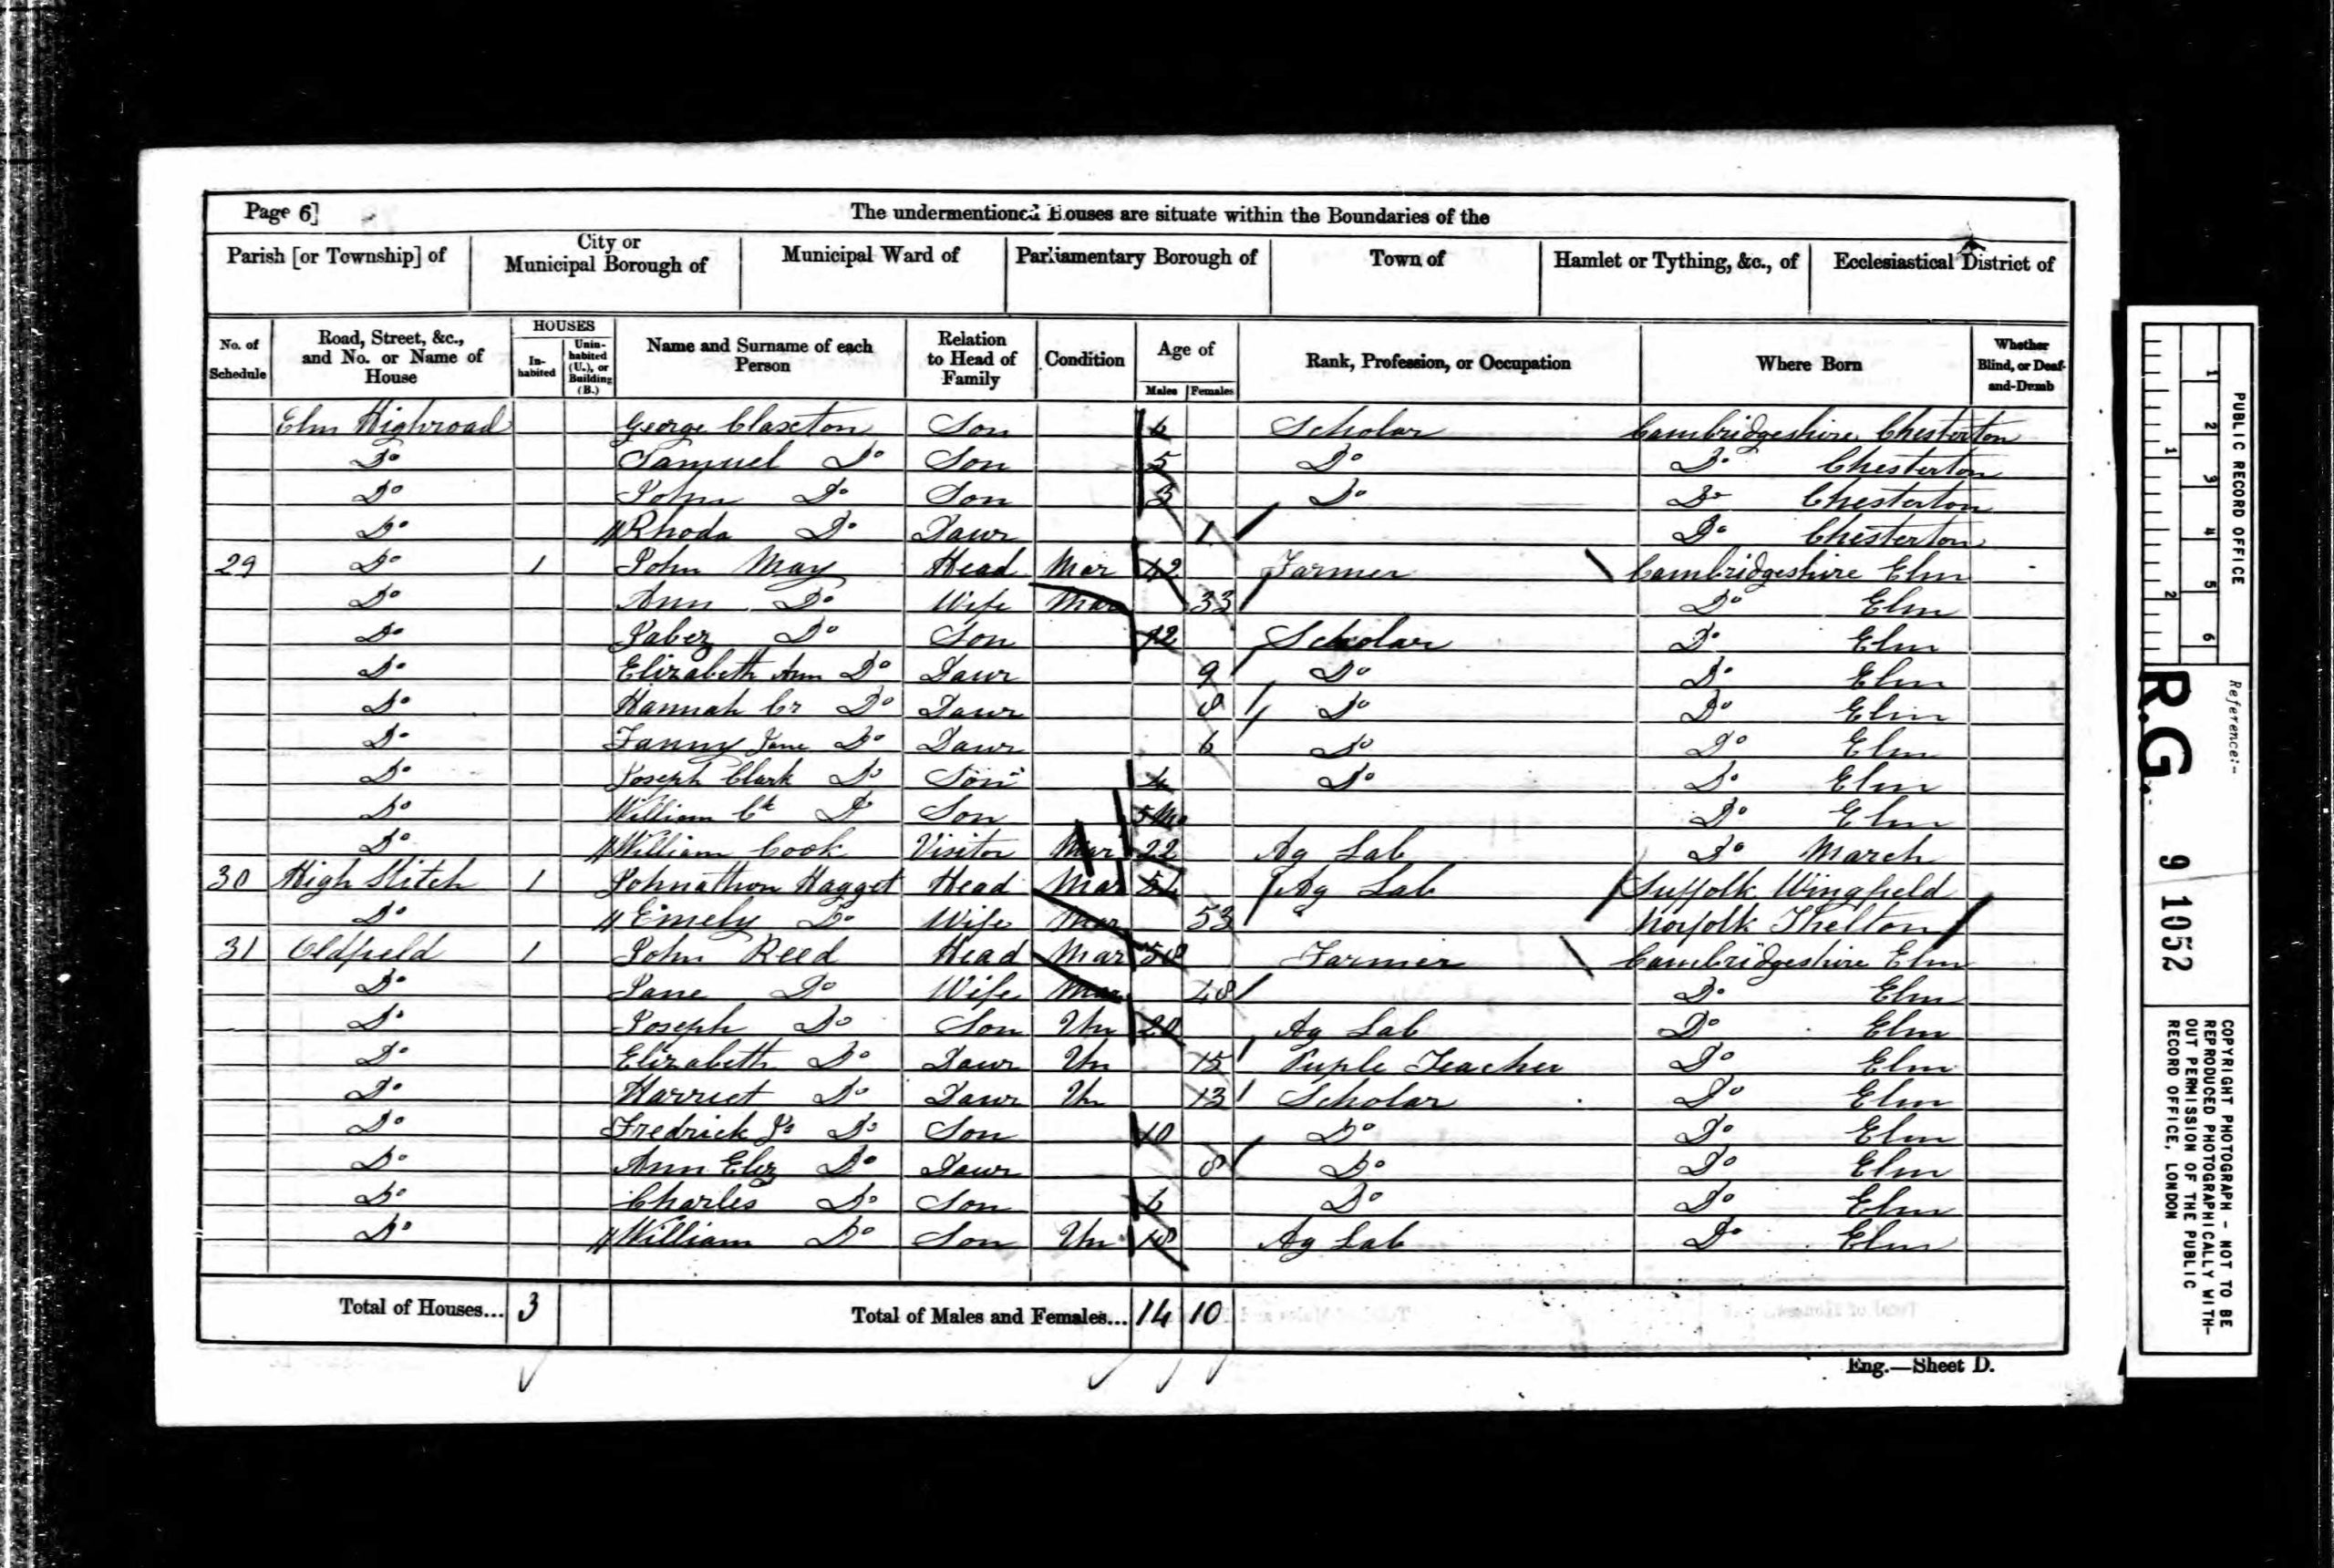 Page 6] The undermentioned Houses are situate within the Boundaries of the
Parish [or Township] of City or Municipal Borough of Municipal Ward of Parliamentary Borough of Town of Hamlet or Tything, &c., of Ecclesiastical District of
No. of Schedule Road, Street, &c., and No. or Name of House HOUSES In-habited Unin-habited (U.), or Building (B.) Name and Surname of each Person Relation to Head of Family Condition Age of Males Females Rank, Profession, or Occupation Where Born Whether Blind, or Deaf-and-Dumb
Elm Highroad George Claxton Son 6 Scholar Cambridgeshire Chesterton
Do Samuel Do Son 5 Do Do Chesterton
Do John Do Son 3 Do Do Chesterton
Do Rhoda Do Dawr 1 Do Chesterton
29 Do 1 John May Head Mar 42 Farmer Cambridgeshire Elm
Do Ann Do Wife Mar 33 Do Elm
Do Jabez Do Son 12 Scholar Do Elm
Do Elizabeth Ann Do Dawr 9 Do Do Elm
Do Hannah Cr Do Dawr 8 Do Do Elm
Do Fanny Jane Do Dawr 6 Do Do Elm
Do Joseph Clark Do Son 4 Do Do Elm
Do William Ck Do Son 5 Mo Do Elm
Do William Cook Visitor Mar 22 Ag Lab Do March
30 High Stitch 1 Johnathon Hagget Head Mar Ag Lab Suffolk Wingfield
Do Emely Do Wife Mar 53 Norfolk Thelton
31 Oldfield 1 John Reed Head Mar 58 Farmer Cambridgeshire Elm
Do Jane Do Wife Mar 48 Do Elm
Do Joseph Do Son Un 20 Ag Lab Do Elm
Do Elizabeth Do Dawr Un 15 Puple Teacher Do Elm
Do Harriet Do Dawr Un 13 Scholar Do Elm
Do Fredrick Js Do Son 10 Do Do Elm
Do Ann Eliz Do Dawr 8 Do Do Elm
Do Charles Do Son 6 Do Do Elm
Do William Do Son Un 18 Ag Lab Do Elm
Total of Houses... 3 Total of Males and Females... 14 10
Eng.—Sheet D.
PUBLIC RECORD OFFICE
1 2 3 4 5 6
1 2
Reference:-
R.G. 9 1052
COPYRIGHT PHOTOGRAPH - NOT TO BE
REPRODUCED PHOTOGRAPHICALLY WITH-
OUT PERMISSION OF THE PUBLIC
RECORD OFFICE, LONDON